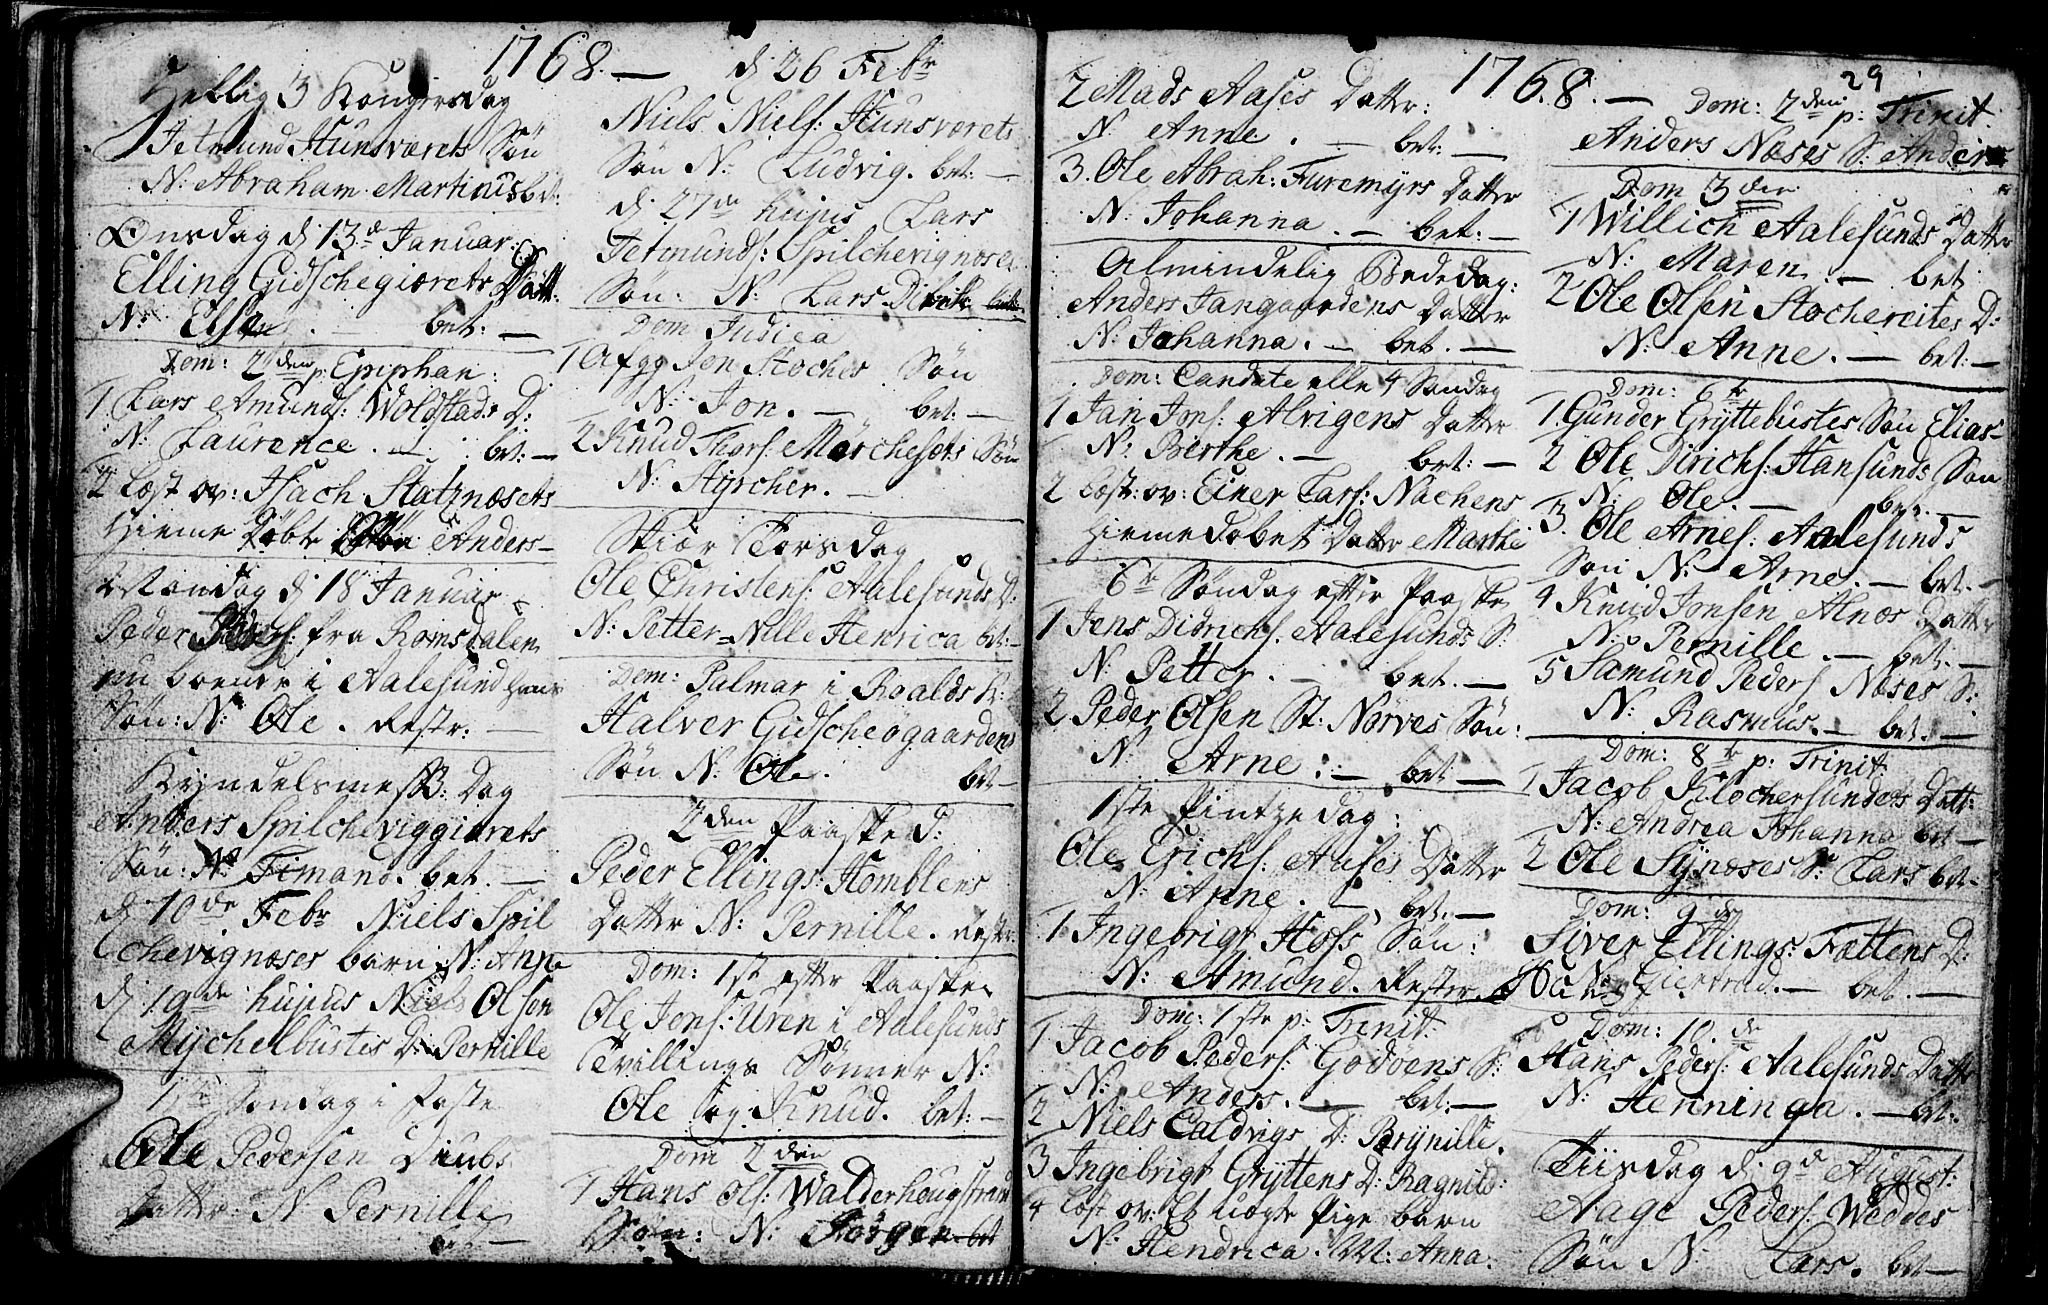 1768. —
Hellig 3 Kongersdag
Jetmund Hunsværets Søn
N: Abraham Martinus bet:
Onsdag d 13de Januar:
Elling Gidschegiærets Dått:
N: Else . — bet: —
Dom: 2den p: Epiphan:
1 Lars Amunds: Wolstads D:
N: Laurence . — bet: —
2 Løst ov: Isach Statznæsets
Hieme døbte Anders —
Mandag d 18 Januar
Peder fra Romsdalen
nu boende i Aalesund hans
Søn: N: Ole. Restr: —
Kyndelsmess: Dag
Anders Spilcheviggiærets
Søn: N: Timand. bet. —
d 10de Febr Niels Spil
chevignæses barn N: Anne
d 19de hujus Niels Olson
Mychelbustes D: Pernille
1ste Søndag i faste
Ole Pedersen Diubs
Datter: N Pernille
bet —
d 26 Febr
Niels Niels: Hunsværets
Søn N: Ludvig. bet: —
d: 27de hujus Lars
Jetmunds: Spilchevignæses
Søn: N: Lars bet:
Dom Judica
1 Afgg Jon Stoches Søn
N: Jon. — bet: —
2 Knud Thors: Mørchesæts Søn
N: Styrcher. —
Skiær Torsdag
Ole Christens: Aalesunds D:
N: Petter-Nille Henrica bet: —
Dom: Palmar i Roalds K:
Halver Gidscheøgaardens
Søn N: Ole. bet —
2den Paaske d:
Peder Ellings: Homblens
Datter N: Pernille. Restr:
Dom: 1st efter Paaske
Ole Jons: Uren i Aalesunds
Tvillings Sønner N:
Ole og Knud. bet: —
Dom 2den
1 Hans Ols: Walderhougstrand
Søn: N: Jörgen bet
1768. —
2 Mads Aases Datter:
N: Anne. — bet: —
3. Ole Abrah: Furemyrs Datter
N: Johanna. — bet: —
Almindelig Bededag:
Anders Tangaardens Datter
N: Johanna. — bet. —
Dom: Cantate elle 4 Søndag
1 Jan Jons: Alvigens Datter
N: Berthe. — bet: —
2 Løst: ov: Einer Lars: Nachens
Hiemedøbet Datter Marthe
6te Søndag efter Paaske
1 Jens Didrichs. Aalesunds S:
N: Petter. — bet. —
2 Peder Olsen St: Nörves Søn:
N: Arne: — bet —
1ste Pintze dag:
Ole Erichs: Aases Datter
N: Anne. — bet. —
1 Ingebrigt Hofs Søn:
N: Amund. Rester
Dom: 1ste p: Trinit:
1 Jacob Peders: Godoens S:
N: Anders. — bet: —
2 Niels Caldvigs D: Brynille.
3 Ingebrigt Gryttens D: Ragnild:
4 Løst ov: Et uægte Pige barn
N: Hendrica. M: Anna:
29
Dom: 2den p: Trinit.
Anders Næses S: Anders
Dom 3die
1 Willich Aalesunds Datter
N: Maren — bet
2 Ole Olsen Stochereites D:
N: Anne. — bet: —
Dom: 6te
1 Gunder Gryttebustes Søn Elias —
2 Ole Dirichs: Hansunds Søn
N: Ole. — bet. —
3. Ole Arnes: Aalesunds
Søn N: Arne. — bet. —
4 Knud Jonsen Alnæs Datter
N: Pernille. — bet. —
5 Samund Peders Næses S:
N: Rasmus. — bet. —
Dom: 8de p: Trinit:
1 Jacob Klochersunders Datt:
N: Andrea Johanna bet —
2 Ole Synæses S: Lars bet —
Dom: 9de
Siver Ellings: Fættens D:
N: Giertrud. — bet. —
Dom: 10de
Hans Peders: Aalesunds Datter
N: Henninga. — bet:
Tiisdag d: 9de August:
Aage Peders: Weddes
Søn N: Lars. bet —